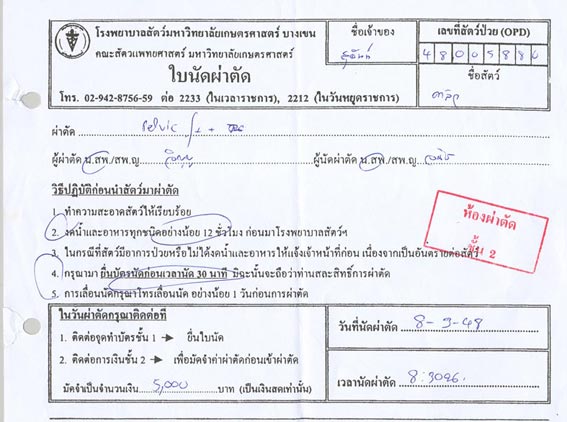 โรงพยาบาลสัตว์มหาวิทยาลัยเกษตรศาสตร์ บางเขน
คณะสัตวแพทยศาสตร์ มหาวิทยาลัยเกษตรศาสตร์
ใบนัดผ่าตัด
โทร. 02-942-8756-59 ต่อ 2233 (ในเวลาราชการ), 2212 (ในวันหยุดราชการ)
ชื่อเจ้าของ
เลขที่สัตว์ป่วย (OPD)
48005886
ชื่อสัตว์
ผ่าตัด pelvic
ผู้ผ่าตัด น.สพ./สพ.ญ. ผู้นัดผ่าตัด น.สพ./สพ.ญ.
วิธีปฏิบัติก่อนนำสัตว์มาผ่าตัด
1. ทำความสะอาดสัตว์ให้เรียบร้อย
2. งดน้ำและอาหารทุกชนิดอย่างน้อย 12 ชั่วโมง ก่อนมาโรงพยาบาลสัตว์ฯ
3. ในกรณีที่สัตว์มีอาการป่วยหรือไม่ได้งดน้ำและอาหารให้แจ้งเจ้าหน้าที่ก่อน เนื่องจากเป็นอันตรายต่อสัตว์
4. กรุณามา ยื่นบัตรนัดก่อนเวลานัด 30 นาที มิฉะนั้นจะถือว่าท่านสละสิทธิ์การผ่าตัด
5. การเลื่อนนัดกรุณาโทรเลื่อนนัด อย่างน้อย 1 วันก่อนการผ่าตัด
ห้องผ่าตัด
ชั้น 2
ในวันผ่าตัดกรุณาติดต่อที่
1. ติดต่อจุดทำบัตรชั้น 1 → ยื่นใบนัด
2. ติดต่อการเงินชั้น 2 → เพื่อมัดจำค่าผ่าตัดก่อนเข้าผ่าตัด
มัดจำเป็นจำนวนเงิน 5,000 บาท (เป็นเงินสดเท่านั้น)
วันที่นัดผ่าตัด 8-9-48
เวลานัดผ่าตัด 8:30น.